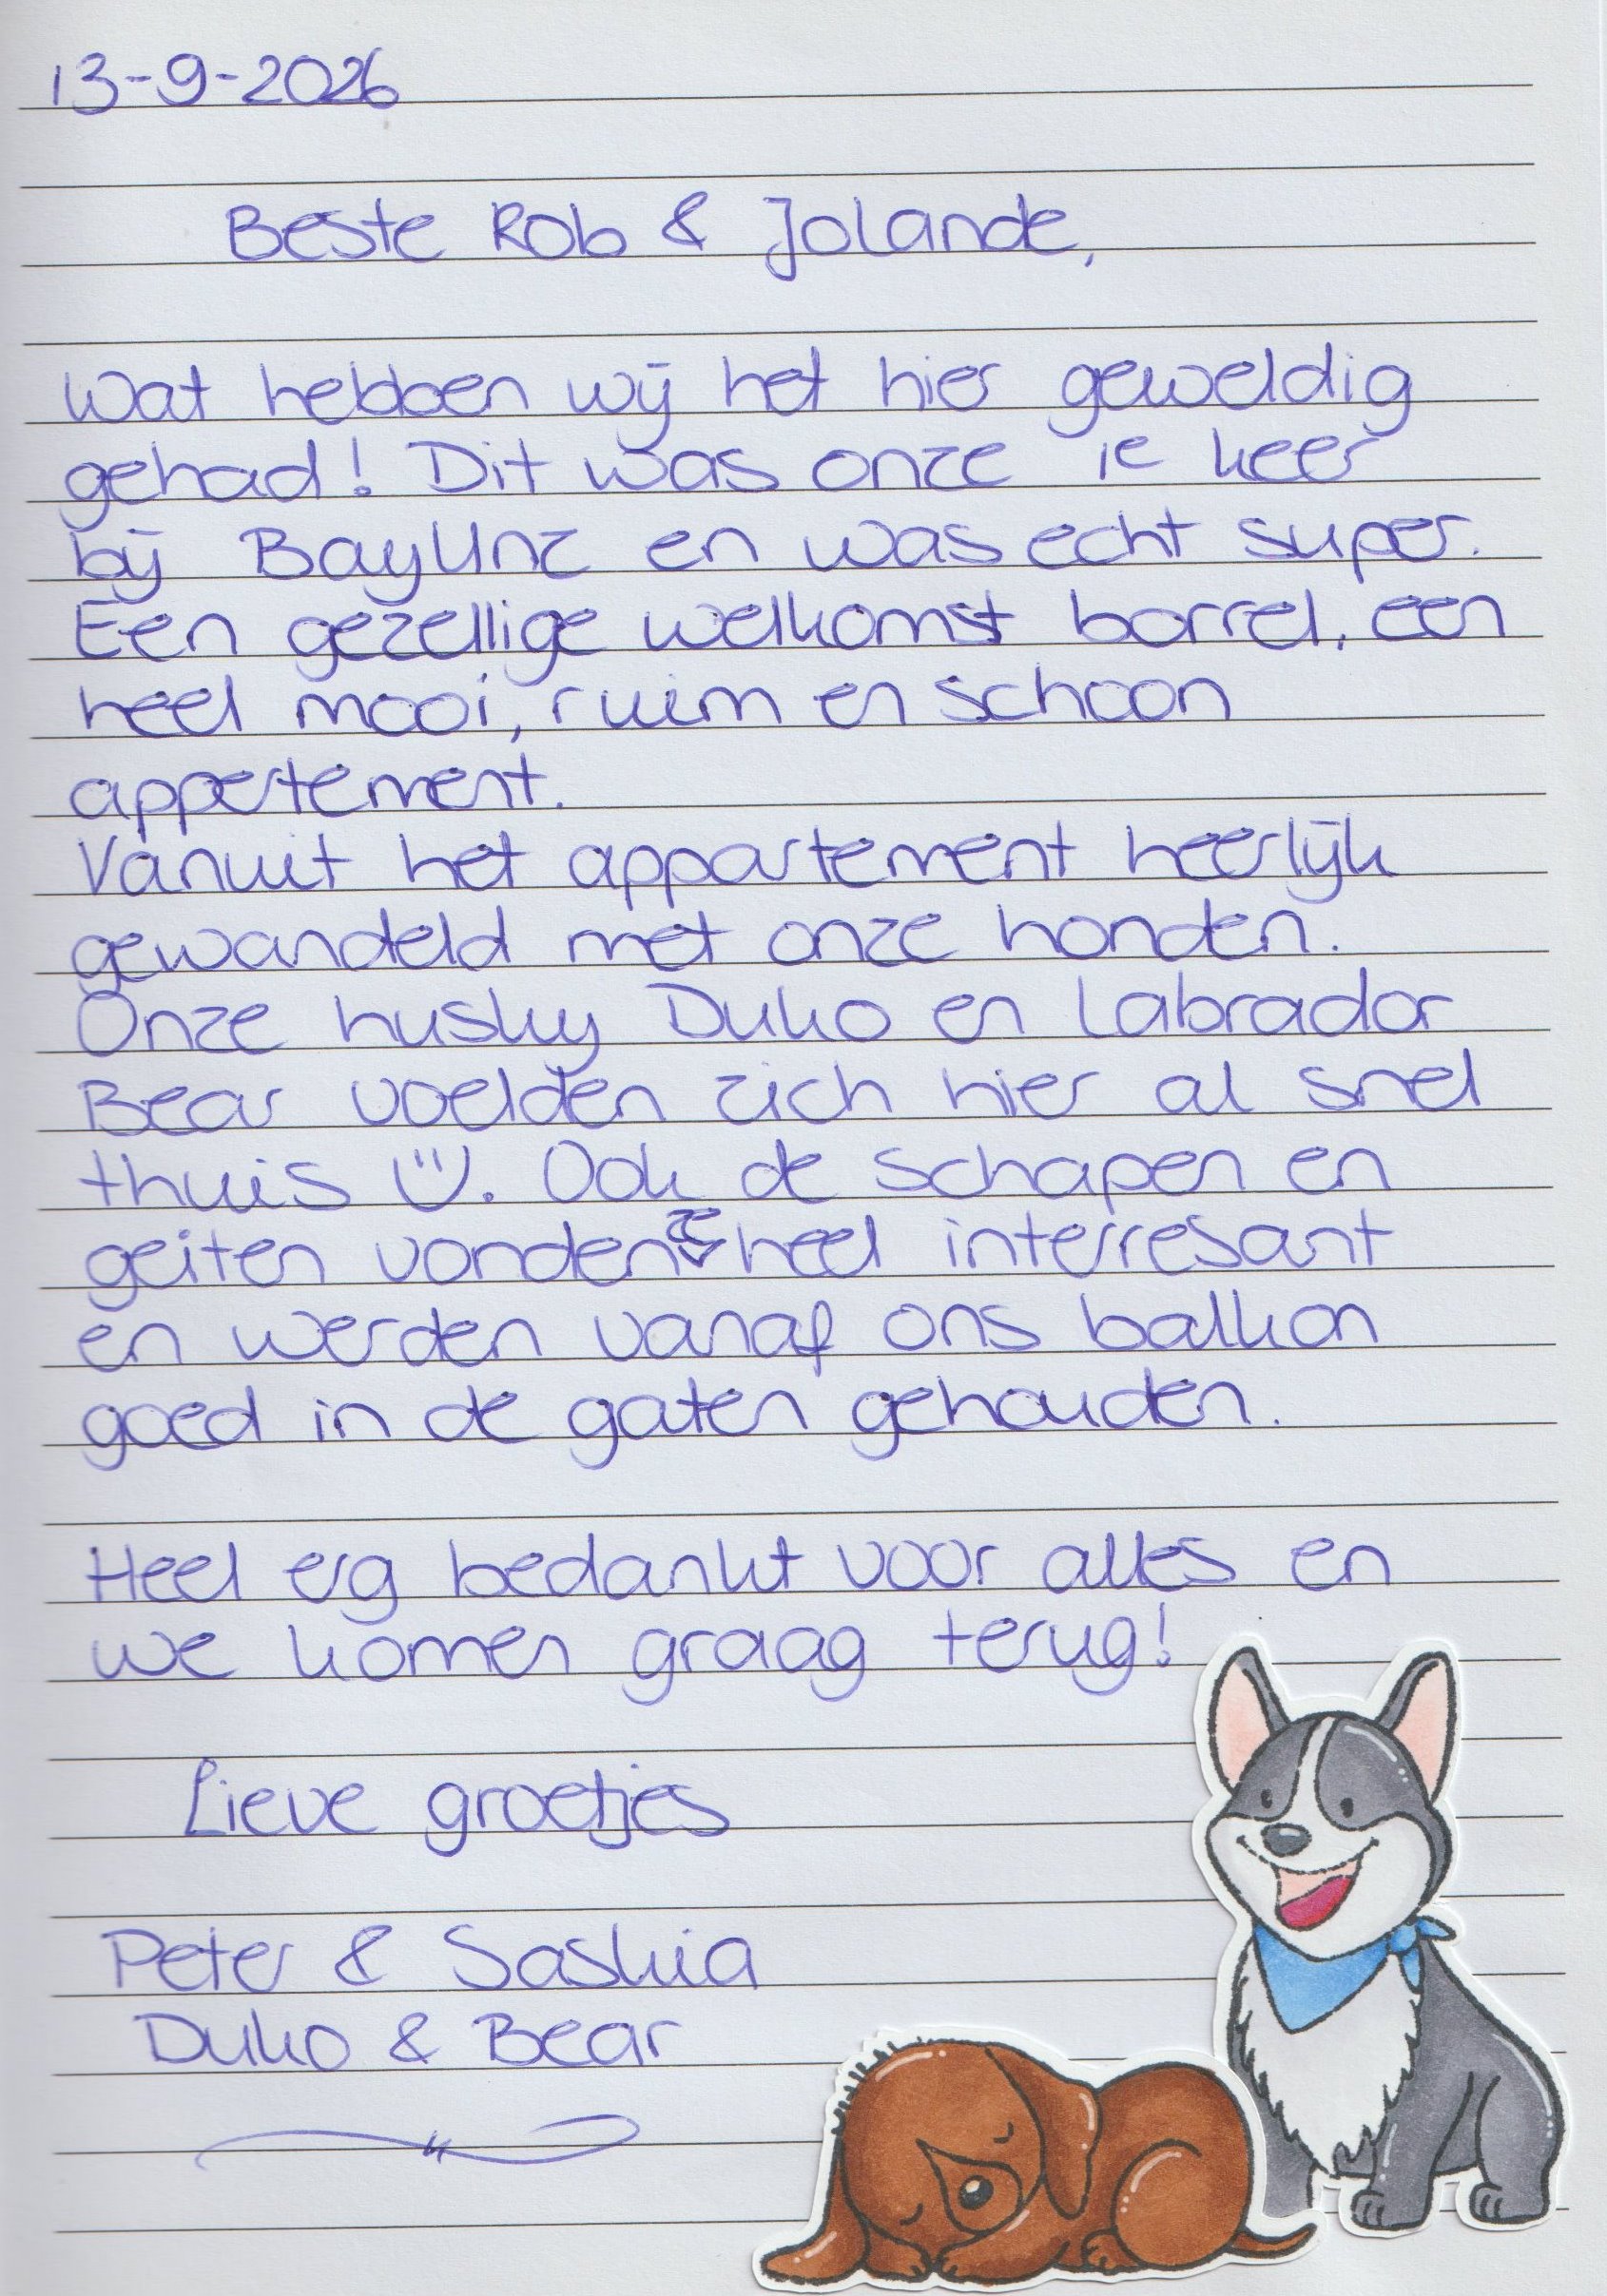 13-9-2026
Beste Rob & Jolande,
Wat hebben wij het hier geweldig
gehad! Dit was onze 1e keer
bij BayUnz en was echt super.
Een gezellige welkomst borrel, een
heel mooi, ruim en schoon
appertement.
Vanuit het appartement heerlijk
gewandeld met onze honden.
Onze husky Duko en Labrador
Bear voelden zich hier al snel
thuis ☺. Ook de schapen en
geiten vonden ze heel interresant
en werden vanaf ons balkon
goed in de gaten gehouden.
Heel erg bedankt voor alles en
we komen graag terug!
Lieve groetjes
Peter & Saskia
Duko & Bear